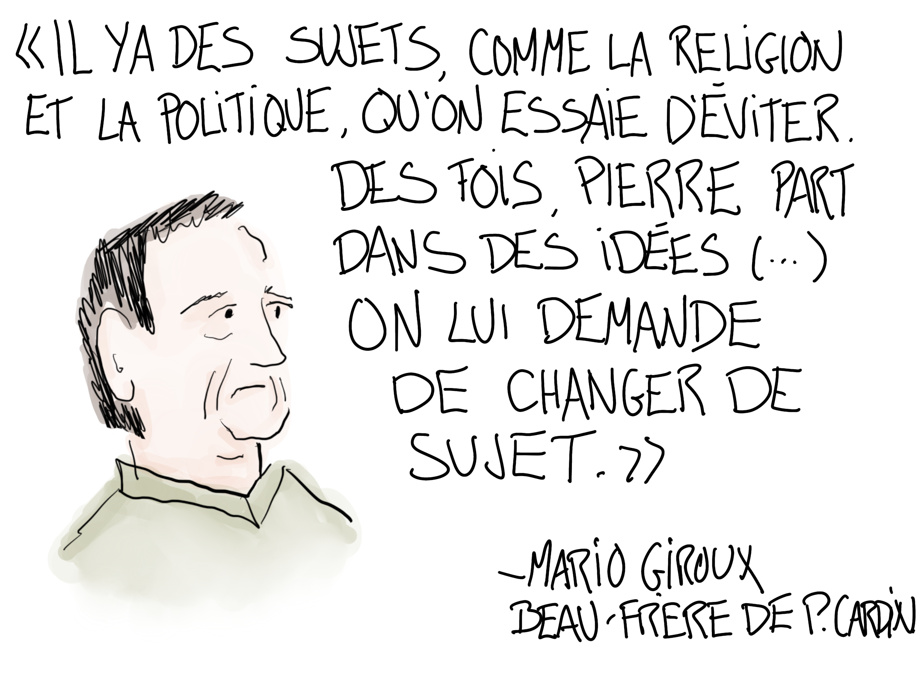 «IL Y A DES SUJETS, COMME LA RELIGION
ET LA POLITIQUE, QU'ON ESSAIE D'ÉVITER.
DES FOIS, PIERRE PART
DANS DES IDÉES (...)
ON LUI DEMANDE
DE CHANGER DE
SUJET.»
–MARIO GIROUX
BEAU-FRÈRE DE P. CARDIN